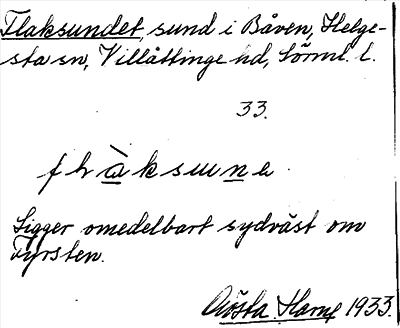 Flaksundet, sund i Båven, Helge-
sta sn, Villåttinge hd, Sörml. l.
33.
flàksune
Ligger omedelbart sydväst om
Fyrsten.
Gösta Harne 1933.